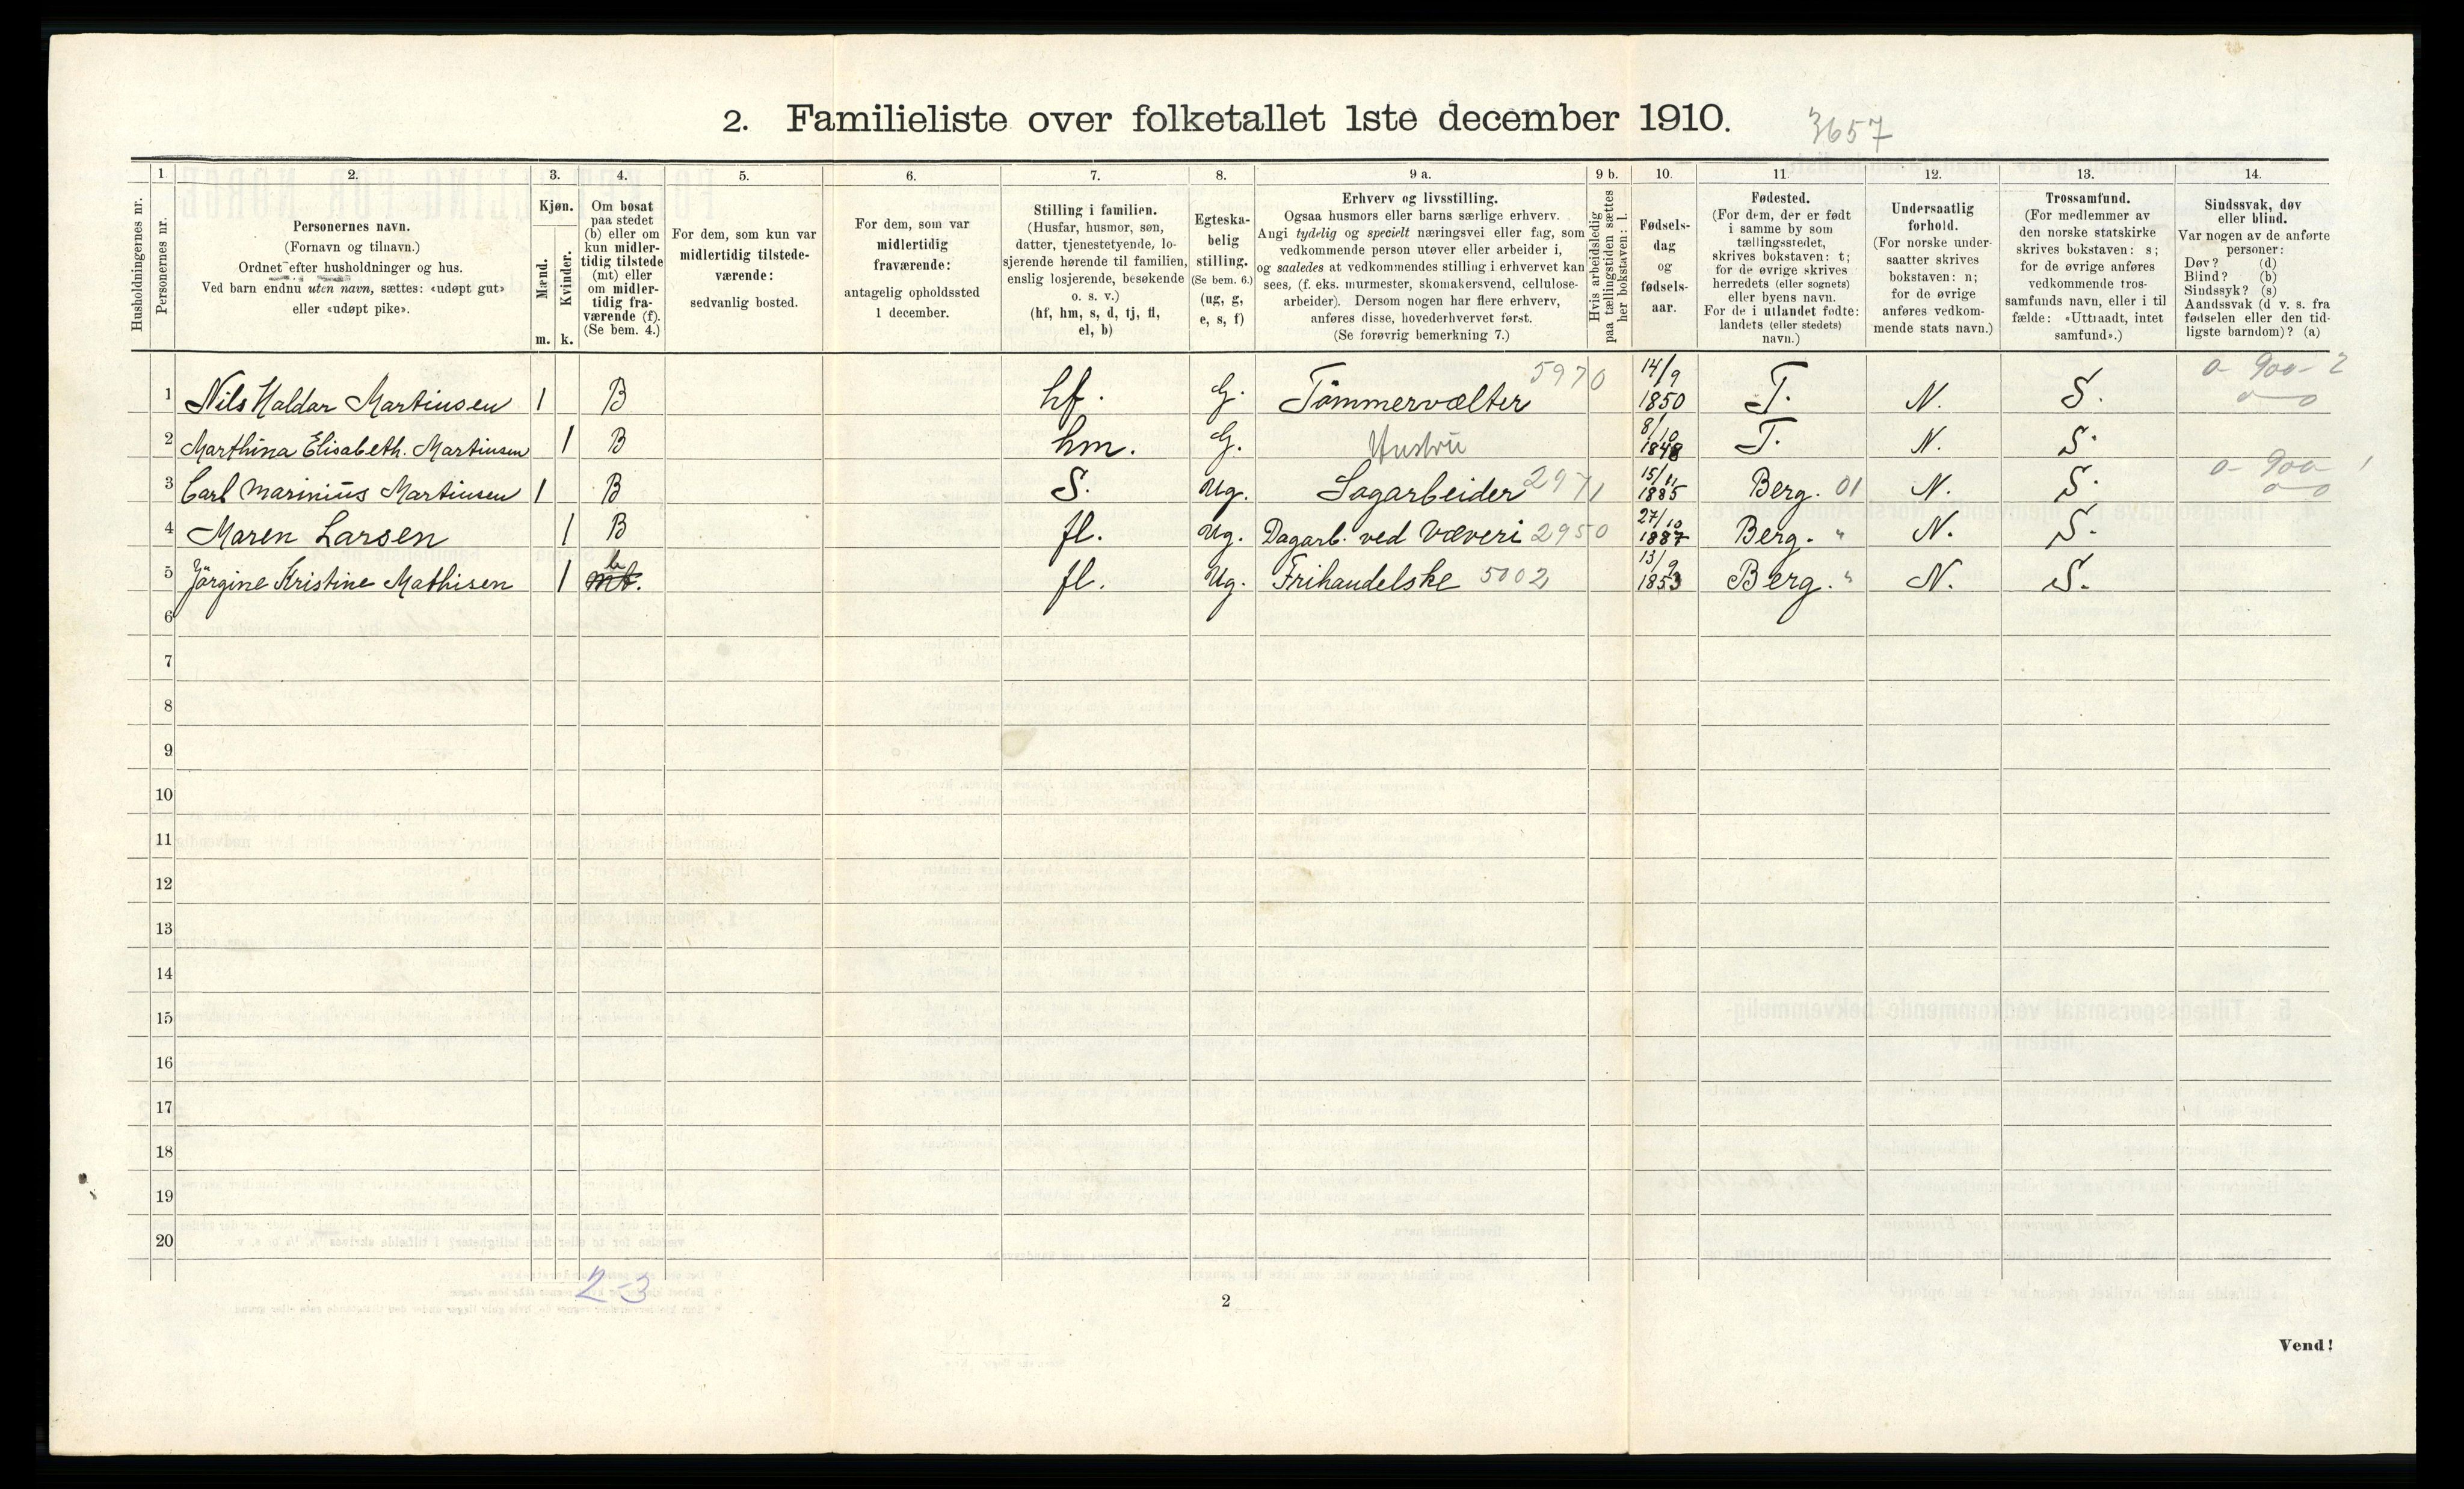 2. Familieliste over folketallet 1ste december 1910.
3657
Husholdningernes nr.
1. Personernes nr.
2. Personernes navn.
(Fornavn og tilnavn.)
Ordnet efter husholdninger og hus.
Ved barn endnu uten navn, sættes: «udøpt gut»
eller «udøpt pike».
3. Kjøn.
Mænd. m.
Kvinder. k.
4. Om bosat
paa stedet
(b) eller om
kun midler-
tidig tilstede
(mt) eller
om midler-
tidig fra-
værende (f).
(Se bem. 4.)
5. For dem, som kun var
midlertidig tilstede-
værende:
sedvanlig bosted.
6. For dem, som var
midlertidig
fraværende:
antagelig opholdssted
1 december.
7. Stilling i familien.
(Husfar, husmor, søn,
datter, tjenestetyende, lo-
sjerende hørende til familien,
enslig losjerende, besøkende
o. s. v.)
(hf, hm, s, d, tj, fl,
el, b)
8. Egteska-
belig
stilling.
(Se bem. 6.)
(ug, g,
e, s, f)
9 a. Erhverv og livsstilling.
Ogsaa husmors eller barns særlige erhverv.
Angi tydelig og specielt næringsvei eller fag, som
vedkommende person utøver eller arbeider i,
og saaledes at vedkommendes stilling i erhvervet kan
sees, (f. eks. murmester, skomakersvend, cellulose-
arbeider). Dersom nogen har flere erhverv,
anføres disse, hovederhvervet først.
(Se forøvrig bemerkning 7.)
9 b. Hvis arbeidsledig
paa tællingstiden sættes
her bokstaven: l.
10. Fødsels-
dag
og
fødsels-
aar.
11. Fødested.
(For dem, der er født
i samme by som
tællingsstedet,
skrives bokstaven: t;
for de øvrige skrives
herredets (eller sognets)
eller byens navn.
For de i utlandet fødte:
landets (eller stedets)
navn.)
12. Undersaatlig
forhold.
(For norske under-
saatter skrives
bokstaven: n;
for de øvrige
anføres vedkom-
mende stats navn.)
13. Trossamfund.
(For medlemmer av
den norske statskirke
skrives bokstaven: s;
for de øvrige anføres
vedkommende tros-
samfunds navn, eller i til
fælde: «Uttraadt, intet
samfund».)
14. Sindssvak, døv
eller blind.
Var nogen av de anførte
personer:
Døv? (d)
Blind? (b)
Sindssyk? (s)
Aandssvak (d v. s. fra
fødselen eller den tid-
ligste barndom)? (a)
1 Nils Haldar Martinsen 1 B hf. G. Tömmervælter 5970 14/9 1850 T. N. S. 0- 900- 2
2 Marthina Elisabeth. Martinsen 1 B hm. G. Hustru 8/10 1848 T. N. S.
3 Carl Marinius Martinsen 1 B S. Ug. Sagarbeider 2971 15/11 1885 Berg. 01 N. S. 0- 900- 1
4 Maren Larsen 1 B fl. Ug. Dagarb. ved Væveri 2950 27/10 1887 Berg. " N. S.
5 Jörgine Kristine Mathisen 1 mt. b fl. Ug. Frihandelske 5002 13/9 1853 Berg. " N. S.
6
7
8
9
10
11
12
13
14
15
16
17
18
19
20
2-3
2
Vend!